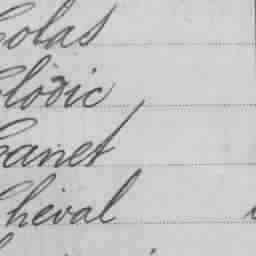 Colas
Clodic
Canet
Cheval